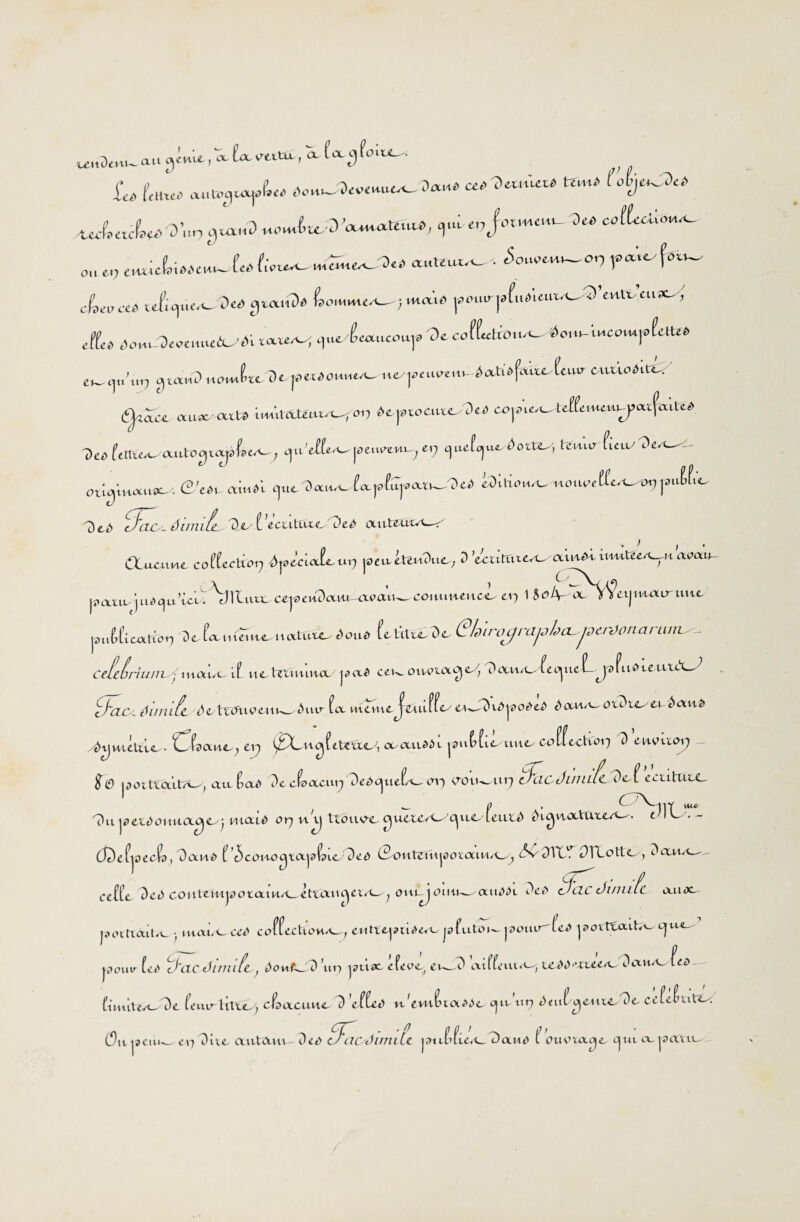 rendent au génie, à la vertu, à la gloire.
Les lettres autographes sont devenues dans ces derniers tems l'objet des
recherches d'un grand nombre d'amateurs, qui en forment des collections
ou en enrichissent les livres mêmes des auteurs. Souvent on paie fort
cher ces reliques des grands hommes; mais pour plusieurs d'entr'eux,
elles sont devenues si rares, que beaucoup de collections sont incomplettes
et qu'un grand nombre de personnes ne peuvent satisfaire leur curiosité.
Grace aux arts imitateurs, on se procure des copies tellement parfaites
des lettres autographes, qu'elles peuvent, en quelque sorte, tenir lieu des
originaux. C'est ainsi que dans la plupart des éditions nouvelles on publie
des Fac-simile de l'écriture des auteurs.
Aucune collection spéciale un peu étendue, d'écritures ainsi imitées, n'avait
paru jusqu'ici. Murr cependant avait commencé en 1804 à Weymar une
publication de la même nature sous le titre de Chirographa personarum
celebrium; mais il ne termina pas cet ouvrage, dans lequel plusieurs
Fac-simile se trouvent sur la même feuille et disposés sans ordre et sans
symétrie. Thane, en Angleterre, a aussi publié une collection d'environ
80 portraits, au bas de chacun desquels on voit un Fac simile de l'écriture
du personnage; mais on n'y trouve guères que leurs signatures. Mme
Delpech, dans l'Iconographie des Contemporains, & Mr Motte, dans
celle des contemporains étrangers, ont joint aussi des Fac Simile aux
portraits; mais ces collections, entreprises plutôt pour les portraits que
pour les Fac simile, sont d'un prix élevé, et d'ailleurs, resserrées dans les
limites de leur titre, chacune d'elles n'embrasse qu'un seul genre de célébrité.
On peut en dire autant des Fac-simile publiés dans l'ouvrage qui a paru